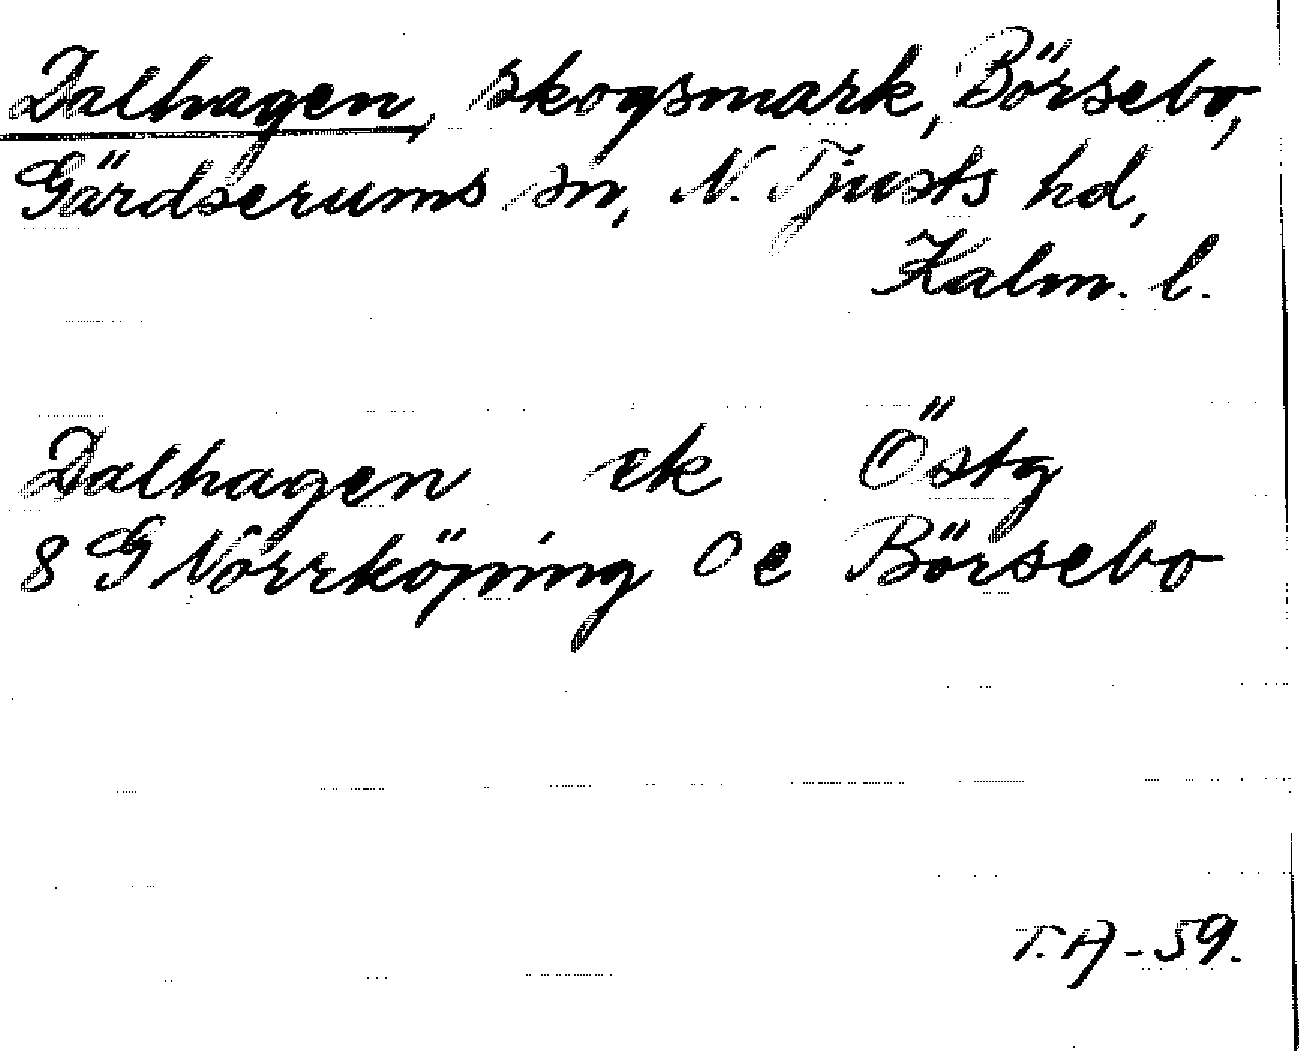 Dalhagen, skogsmark, Börsebo,
Gärdserums sn, N. Tjusts hd,
Kalm. l.
Dalhagen ek Östg
8 G Norrköping 0 e Börsebo
T.A - 59.